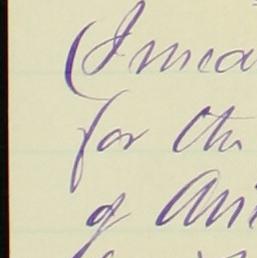 (I mea
for the
of Ani